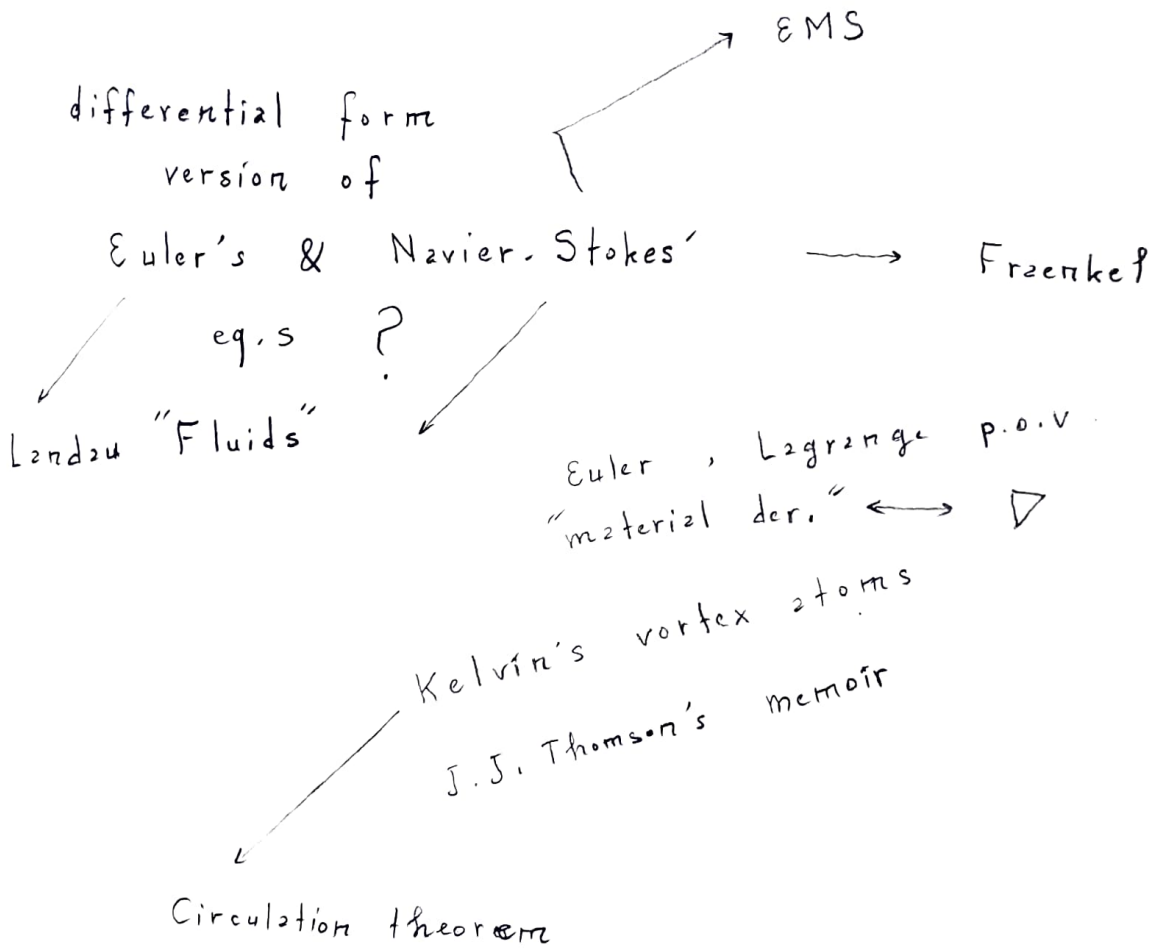 EMS
differential form
version of
Euler's & Navier-Stokes'
Fraenkel
eq.s ?
Landau "Fluids"
Euler, Lagrange p.o.v.
"material der." ↔ ∇
Kelvin's vortex atoms
J.J. Thomson's memoir
Circulation theorem